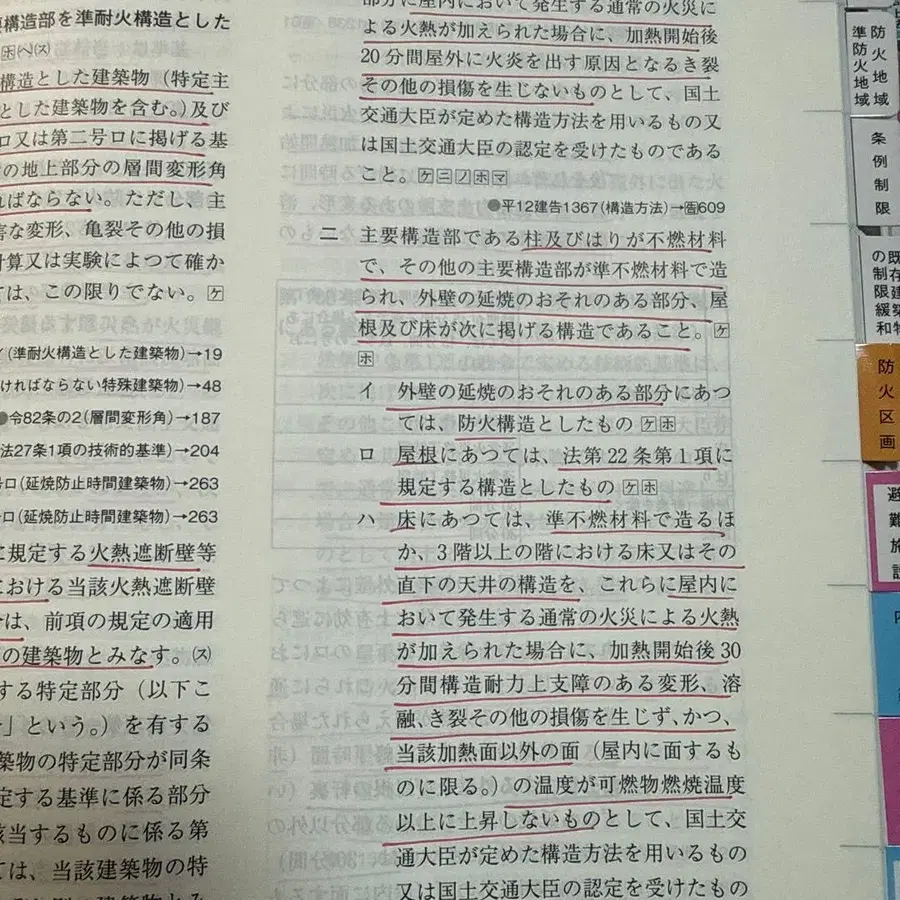 構造部を準耐火構造とした
構造とした建築物（特定主
とした建築物を含む。）及び
ロ又は第二号ロに掲げる基
の地上部分の層間変形角
ればならない。ただし、主
害な変形、亀裂その他の損
計算又は実験によつて確か
ては、この限りでない。ケ
(準耐火構造とした建築物)→19
ければならない特殊建築物)→48
●令82条の2(層間変形角)→187
法27条1項の技術的基準)→204
号ロ(延焼防止時間建築物)→263
号ロ(延焼防止時間建築物)→263
に規定する火熱遮断壁等
における当該火熱遮断壁
は、前項の規定の適用
の建築物とみなす。(ス)
する特定部分（以下こ
」という。）を有する
築物の特定部分が同条
定する基準に係る部分
該当するものに係る第
ては、当該建築物の特
部分に屋内において発生する通常の火災に
よる火熱が加えられた場合に、加熱開始後
20分間屋外に火炎を出す原因となるき裂
その他の損傷を生じないものとして、国土
交通大臣が定めた構造方法を用いるもの又
は国土交通大臣の認定を受けたものである
こと。ケニノホマ
●平12建告1367(構造方法)→告609
二 主要構造部である柱及びはりが不燃材料
で、その他の主要構造部が準不燃材料で造
られ、外壁の延焼のおそれのある部分、屋
根及び床が次に掲げる構造であること。ケ
ホ
イ 外壁の延焼のおそれのある部分にあつ
ては、防火構造としたもの ケホ
ロ 屋根にあつては、法第22条第1項に
規定する構造としたもの ケホ
ハ 床にあつては、準不燃材料で造るほ
か、3階以上の階における床又はその
直下の天井の構造を、これらに屋内に
おいて発生する通常の火災による火熱
が加えられた場合に、加熱開始後30
分間構造耐力上支障のある変形、溶
融、き裂その他の損傷を生じず、かつ、
当該加熱面以外の面（屋内に面するも
のに限る。）の温度が可燃物燃焼温度
以上に上昇しないものとして、国土交
通大臣が定めた構造方法を用いるもの
又は国土交通大臣の認定を受けたもの
防火地域
準防火地域
条例制限
既存建築
の制限緩和
防火区画
避難施設